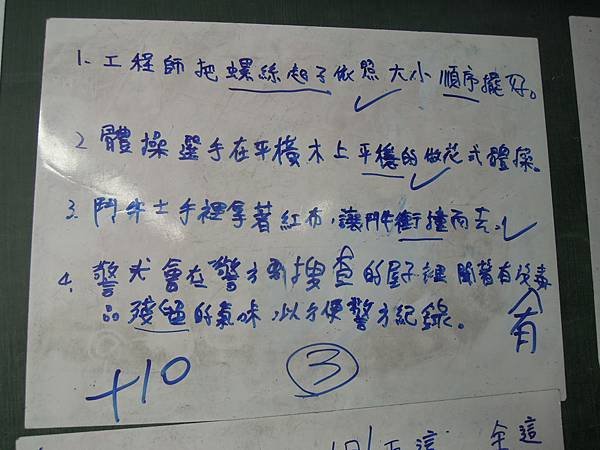 1. 工程師把螺絲起子依照大小順序擺好。
2 體操選手在平橫木上平穩的做花式體操。
3. 鬥牛士手裡拿著紅布,讓鬥牛衝撞而去。
4. 警犬會在警方要搜查的屋子裡聞著有沒毒
有
品殘留的氣味,以方便警方紀錄。
+10
3
這 全這